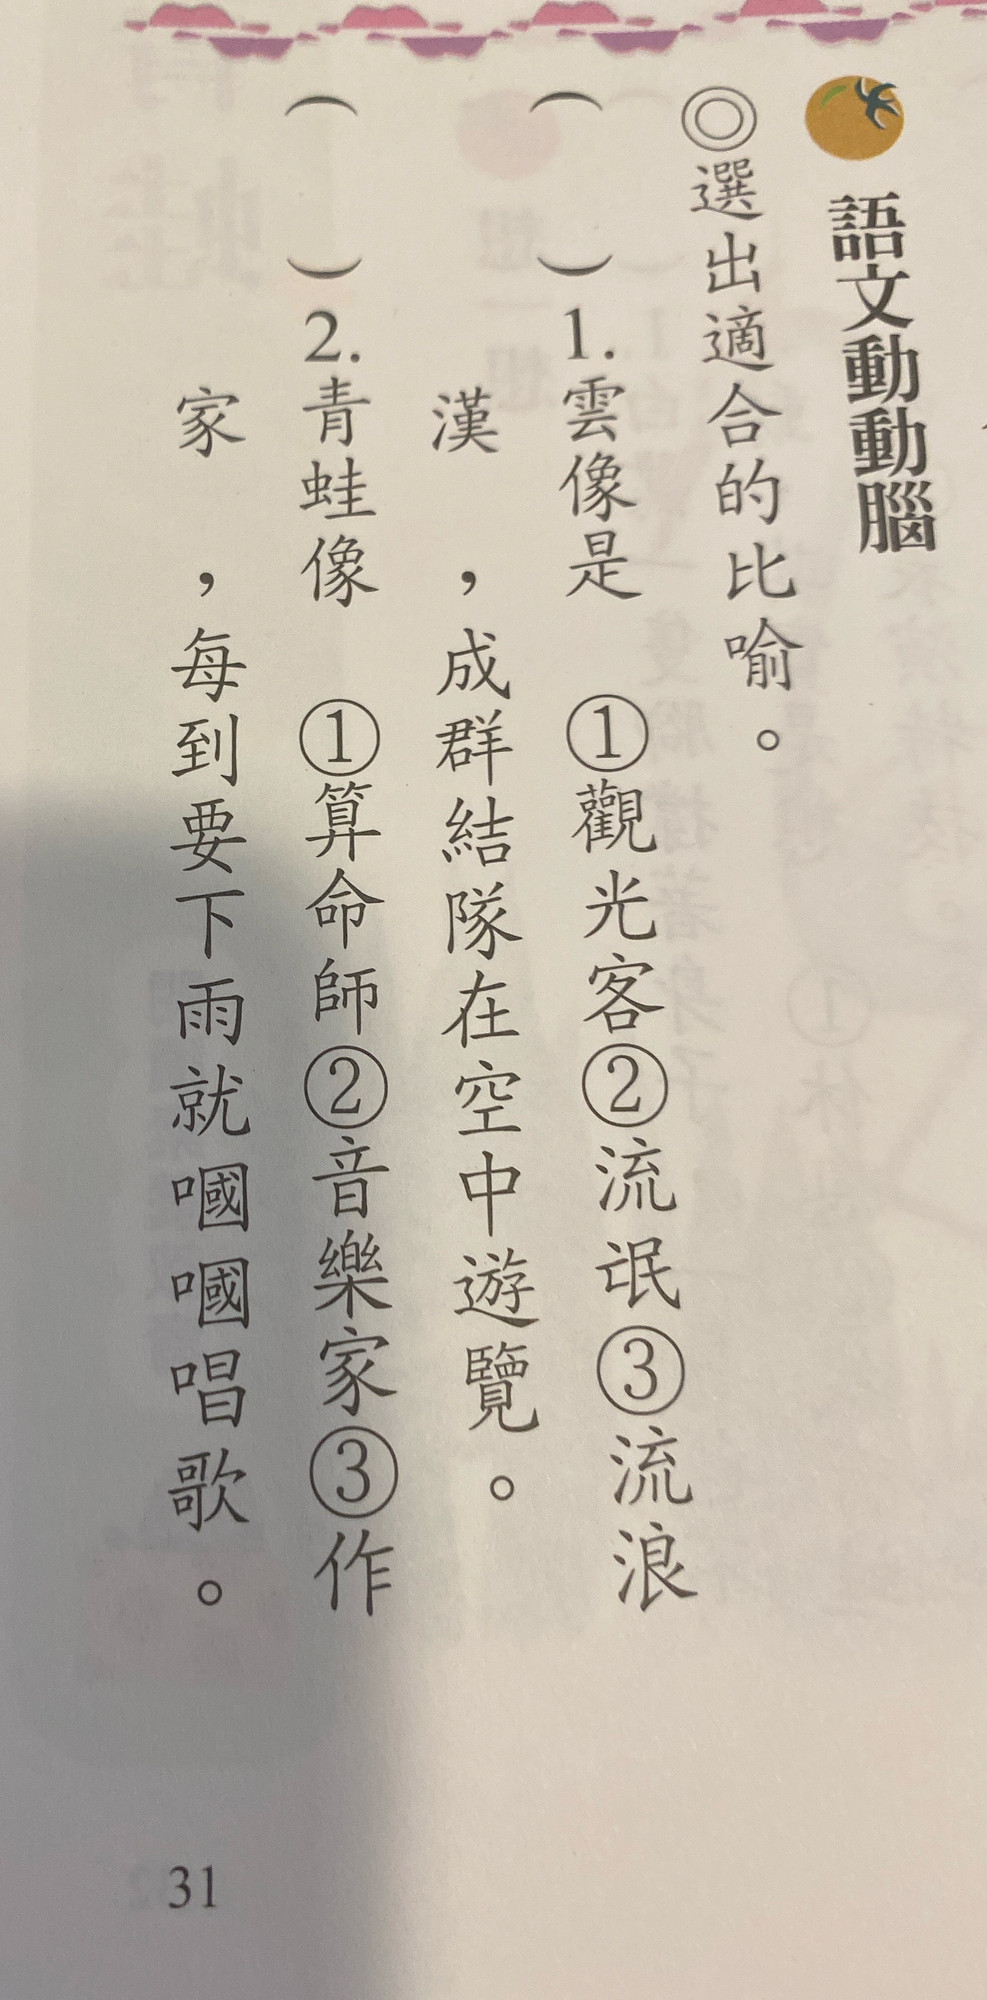 語文動動腦
◎選出適合的比喻。
（　）1.雲像是　①觀光客②流氓③流浪
漢　，成群結隊在空中遊覽。
（　）2.青蛙像　①算命師②音樂家③作
家　，每到要下雨就嘓嘓唱歌。
31